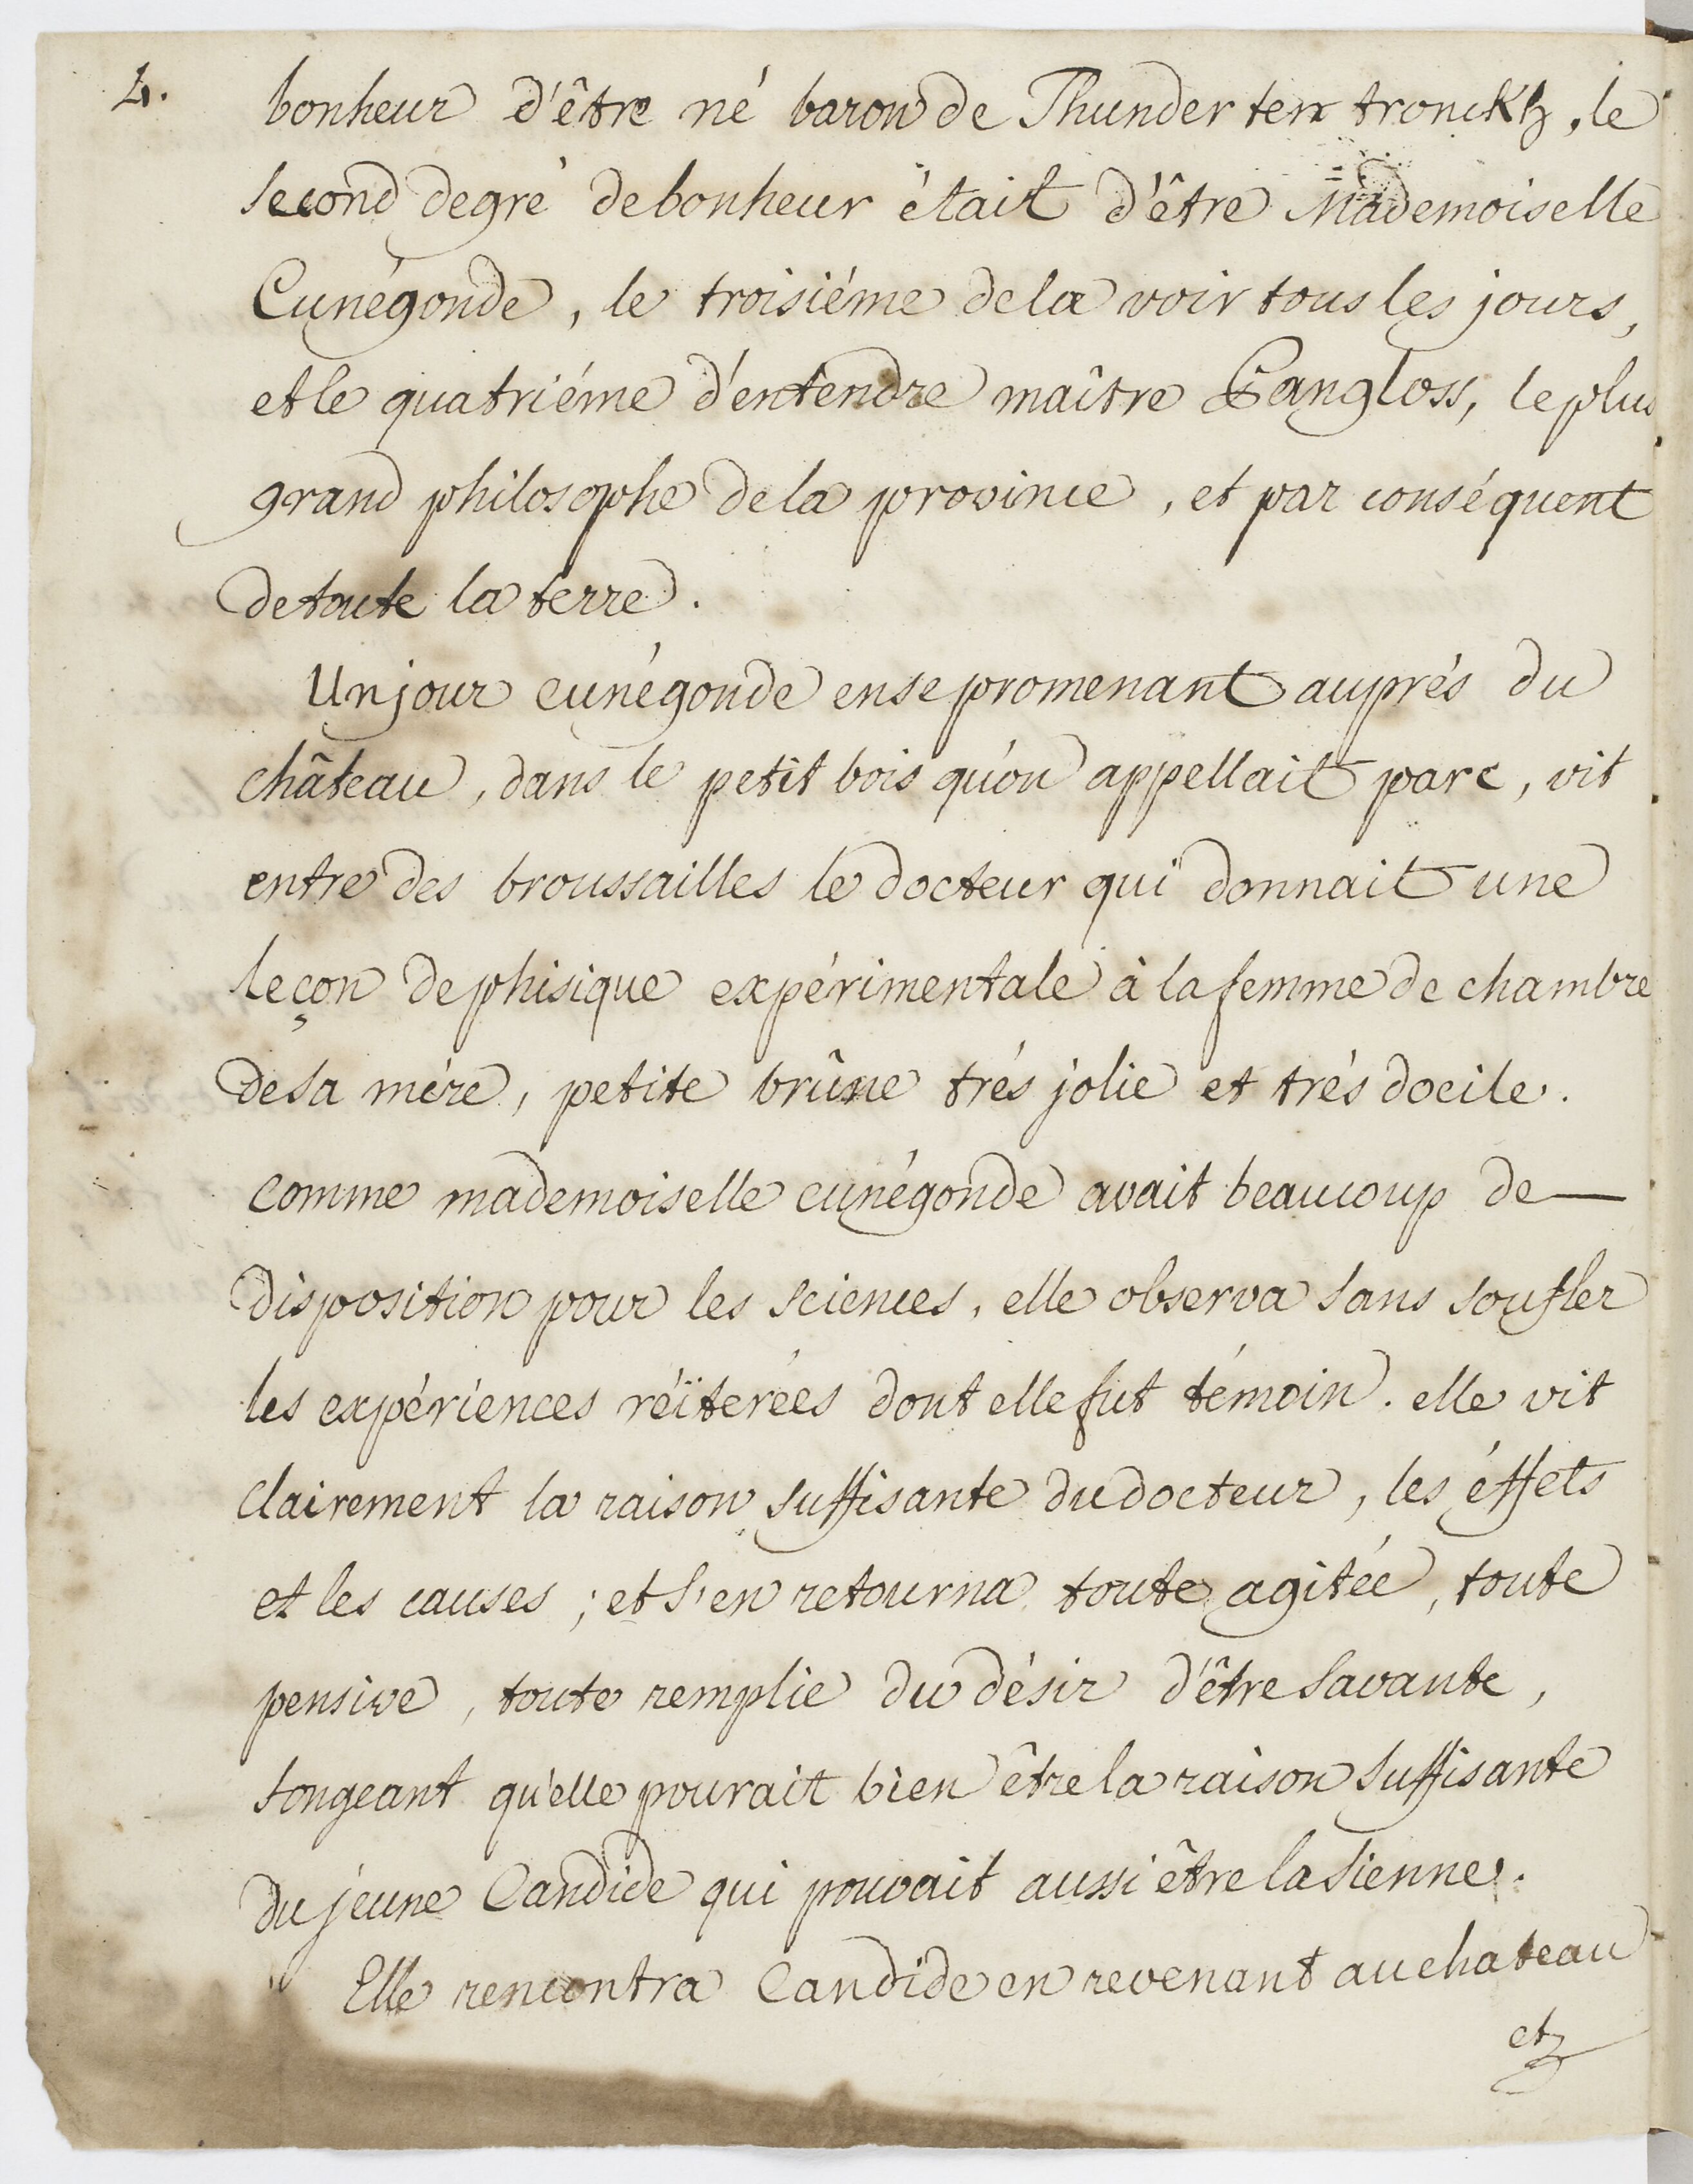 4.
bonheur d'être né baron de Thunder ten tronckh, le
second degré de bonheur était d'être Mademoiselle
Cunégonde, le troisiéme de la voir tous les jours,
et le quatriéme d'entendre maître Pangloss, le plus
grand philosophe de la province, et par conséquent
de toute la terre.
Un jour cunégonde en se promenant auprés du
château, dans le petit bois qu'on appellait parc, vit
entre des broussailles le docteur qui donnait une
leçon de phisique expérimentale à la femme de chambre
de sa mére, petite brûne trés jolie et trés docile.
comme mademoiselle cunégonde avait beaucoup de
disposition pour les sciences, elle observa sans soufler
les expériences réïterées dont elle fut témoin. elle vit
clairement la raison suffisante du docteur, les éffets
et les causes; et s'en retourna toute agitée, toute
pensive, toute remplie du désir d'être savante,
songeant qu'elle pourait bien être la raison suffisante
du jeune Candide qui pouvait aussi être la sienne.
Elle rencontra Candide en revenant au chateau
et